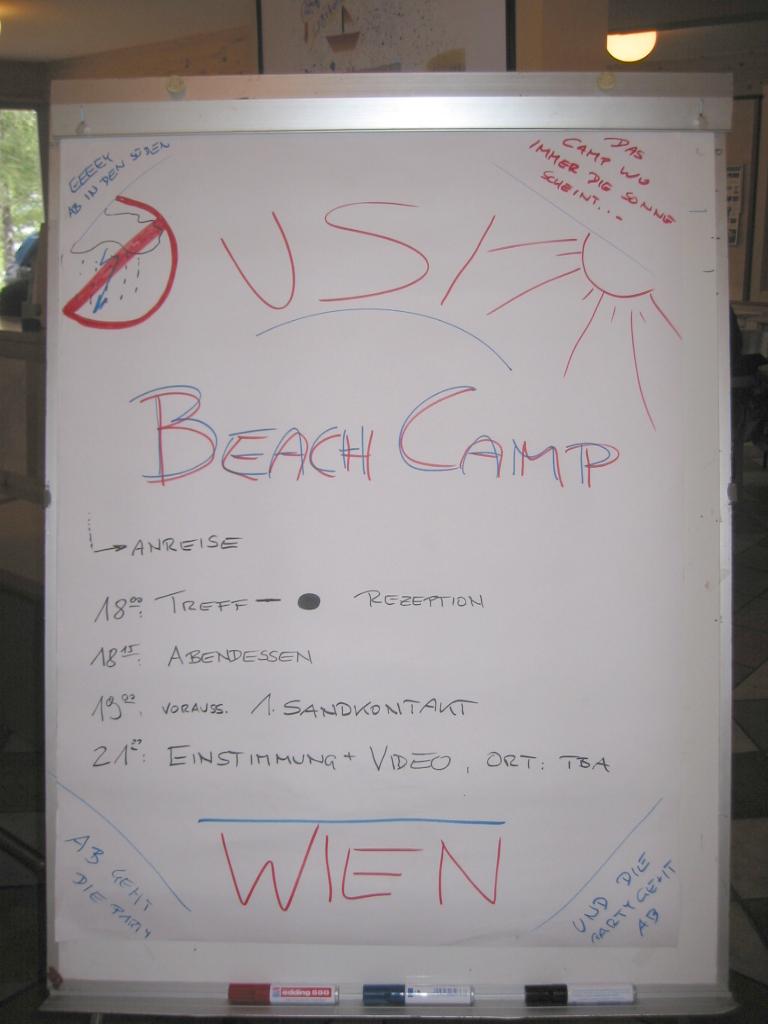 EEEEY
AB IN DEN SÜDEN
DAS
CAMP WO
IMMER DIE SONNE
SCHEINT...
USI
BEACH CAMP
ANREISE
18⁰⁰: TREFF — ● REZEPTION
18¹⁵: ABENDESSEN
19⁰⁰: VORAUSS. 1. SANDKONTAKT
21²⁹: EINSTIMMUNG + VIDEO, ORT: TBA
WIEN
AB GEHT
DIE PARTY
UND DIE
PARTY GEHT
AB
edding 500